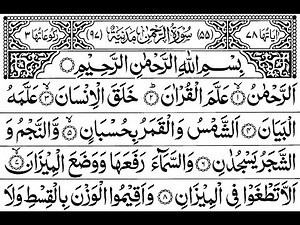 اٰیَاتُهَا ۷۸ (۵۵) سُوْرَةُ الرَّحْمٰنِ مَدَنِيَّةٌ (۹۷) رُكُوْعَاتُهَا ۳
بِسْمِ اللّٰهِ الرَّحْمٰنِ الرَّحِيْمِ
اَلرَّحْمٰنُ ۱ عَلَّمَ الْقُرْاٰنَ ۲ خَلَقَ الْاِنْسَانَ ۳ عَلَّمَهُ
الْبَيَانَ ۴ اَلشَّمْسُ وَالْقَمَرُ بِحُسْبَانٍ ۵ وَّالنَّجْمُ وَ
الشَّجَرُ يَسْجُدٰنِ ۶ وَالسَّمَآءَ رَفَعَهَا وَوَضَعَ الْمِيْزَانَ ۷
اَلَّا تَطْغَوْا فِی الْمِيْزَانِ ۸ وَاَقِيْمُوا الْوَزْنَ بِالْقِسْطِ وَلَا